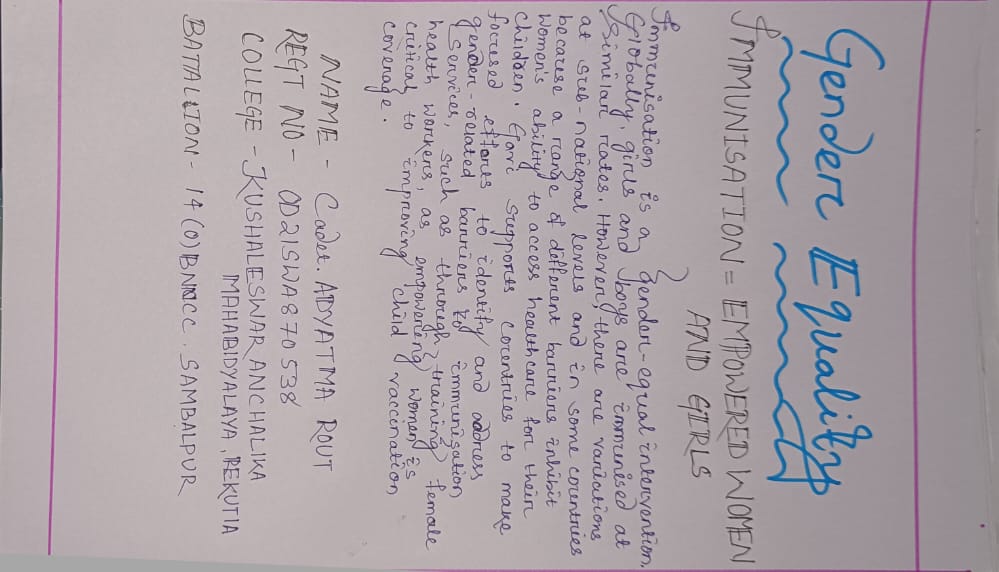 Gender Equality
IMMUNISATION = EMPOWERED WOMEN
AND GIRLS
Immunisation is a gender-equal intervention.
Globally, girls and boys are immunised at
similar rates. However, there are variations
at sub-national levels and in some countries
because a range of different barriers inhibit
women's ability to access healthcare for their
children. Gavi supports countries to make
focused efforts to identify and address
gender-related barriers to immunisation
services, such as through training female
health workers, as empowering women is
critical to improving child vaccination
coverage.
NAME - Cadet. ADYATMA ROUT
REGT NO - OD21SWA870538
COLLEGE - KUSHALESWAR ANCHALIKA
MAHABIDYALAYA, REKUTIA
BATTALION - 14(O)BNNCC. SAMBALPUR